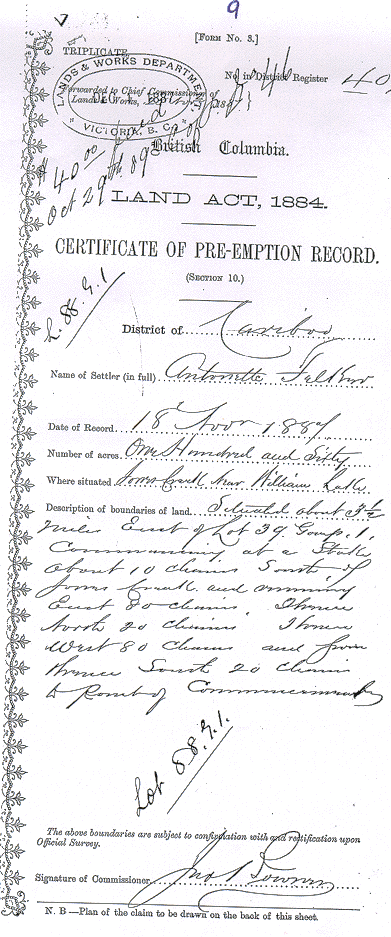 9
[FORM No. 3.]
TRIPLICATE.
LANDS & WORKS DEPARTMENT
VICTORIA, B. C.
No. in District Register 40
Forwarded to Chief Commissioner of
Lands & Works, 188
$40.00 paid
Oct 29th 89
British Columbia.
LAND ACT, 1884.
CERTIFICATE OF PRE-EMPTION RECORD.
(SECTION 10.)
L. 88. G. 1
District of Cariboo
Name of Settler (in full) Antonette Felker
Date of Record 18 Novr 188
Number of acres One Hundred and Sixty
Where situated Jones Creek Near William Lake
Description of boundaries of land. Situated about 3½
Miles East of Lot 39. Group. 1.
Commencing at a Stake
about 10 chains South of
Jones Creek and running
East 80 chains, Thence
North 20 chains Thence
West 80 chains and from
thence South 20 chains
to Point of Commencement
Lot 88. G. 1.
The above boundaries are subject to configuation with and rectification upon
Official Survey.
Signature of Commissioner Jno Bowron
N. B.—Plan of the claim to be drawn on the back of this sheet.